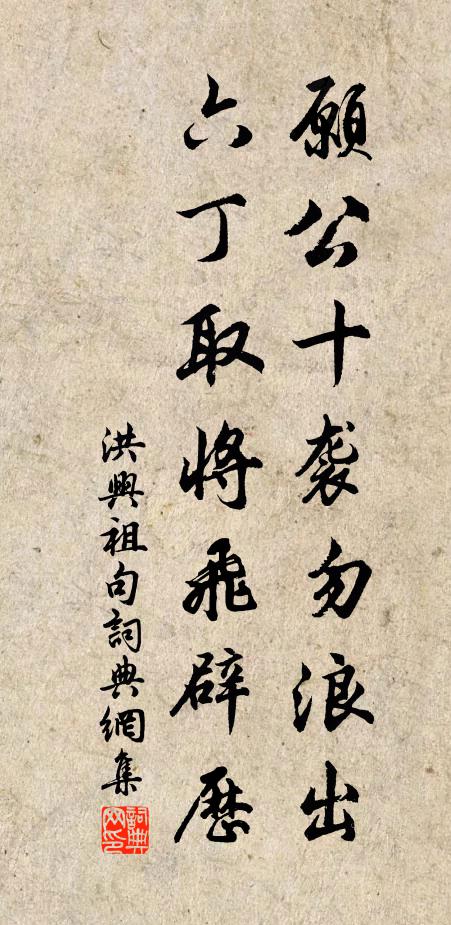 願公十袭勿浪出
六丁取將飛辟歷
洪興祖句詞典網集
詞典網印